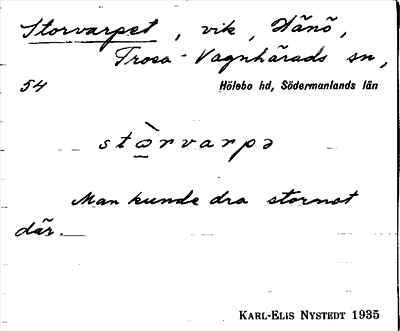 Storvarpet, vik, Hånö,
Trosa-Vagnhärads sn,
54 Hölebo hd, Södermanlands län
stɷ̀rvarpə
Man kunde dra stornot
där.
KARL-ELIS NYSTEDT 1935